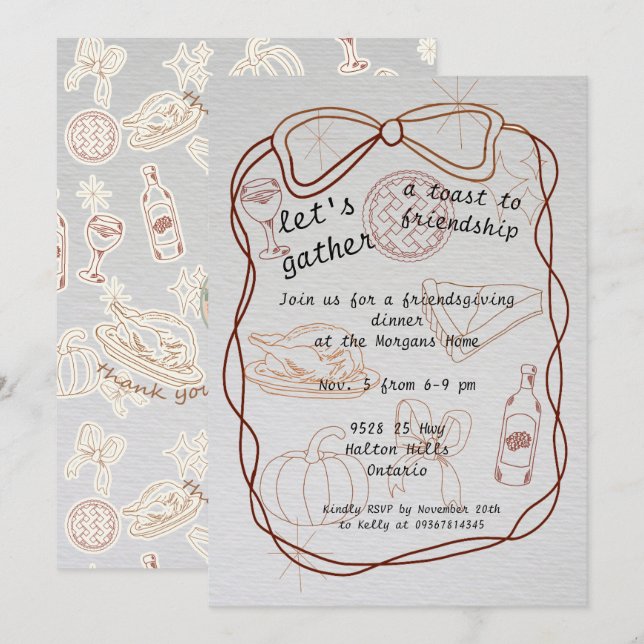 let's
gather
a toast to
friendship
Join us for a friendsgiving
dinner
at the Morgans Home
Nov. 5 from 6-9 pm
9528 25 Hwy
Halton Hills
Ontario
Kindly RSVP by November 20th
to Kelly at 09367814345
thank you